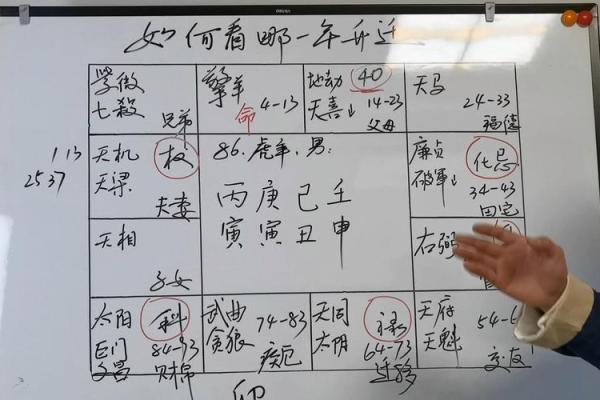 如何看哪一年升迁
紫微
七殺
兄弟
擎羊
命
4-13
地劫
天喜↓
40
14-23
父母
天马
24-33
福德
1 13
25 37
天机
天梁
权
夫妻
86.虎年,男:
丙庚己壬
寅寅丑申
廉贞
破軍↓
化忌
34-43
田宅
天相
子女
右弼
太阳
巨门
文昌
科
84-93
财帛
武曲
贪狼
74-83
疾厄
天同
太阴
禄
64-73
迁移
天府
天魁
54-6
交友
卯